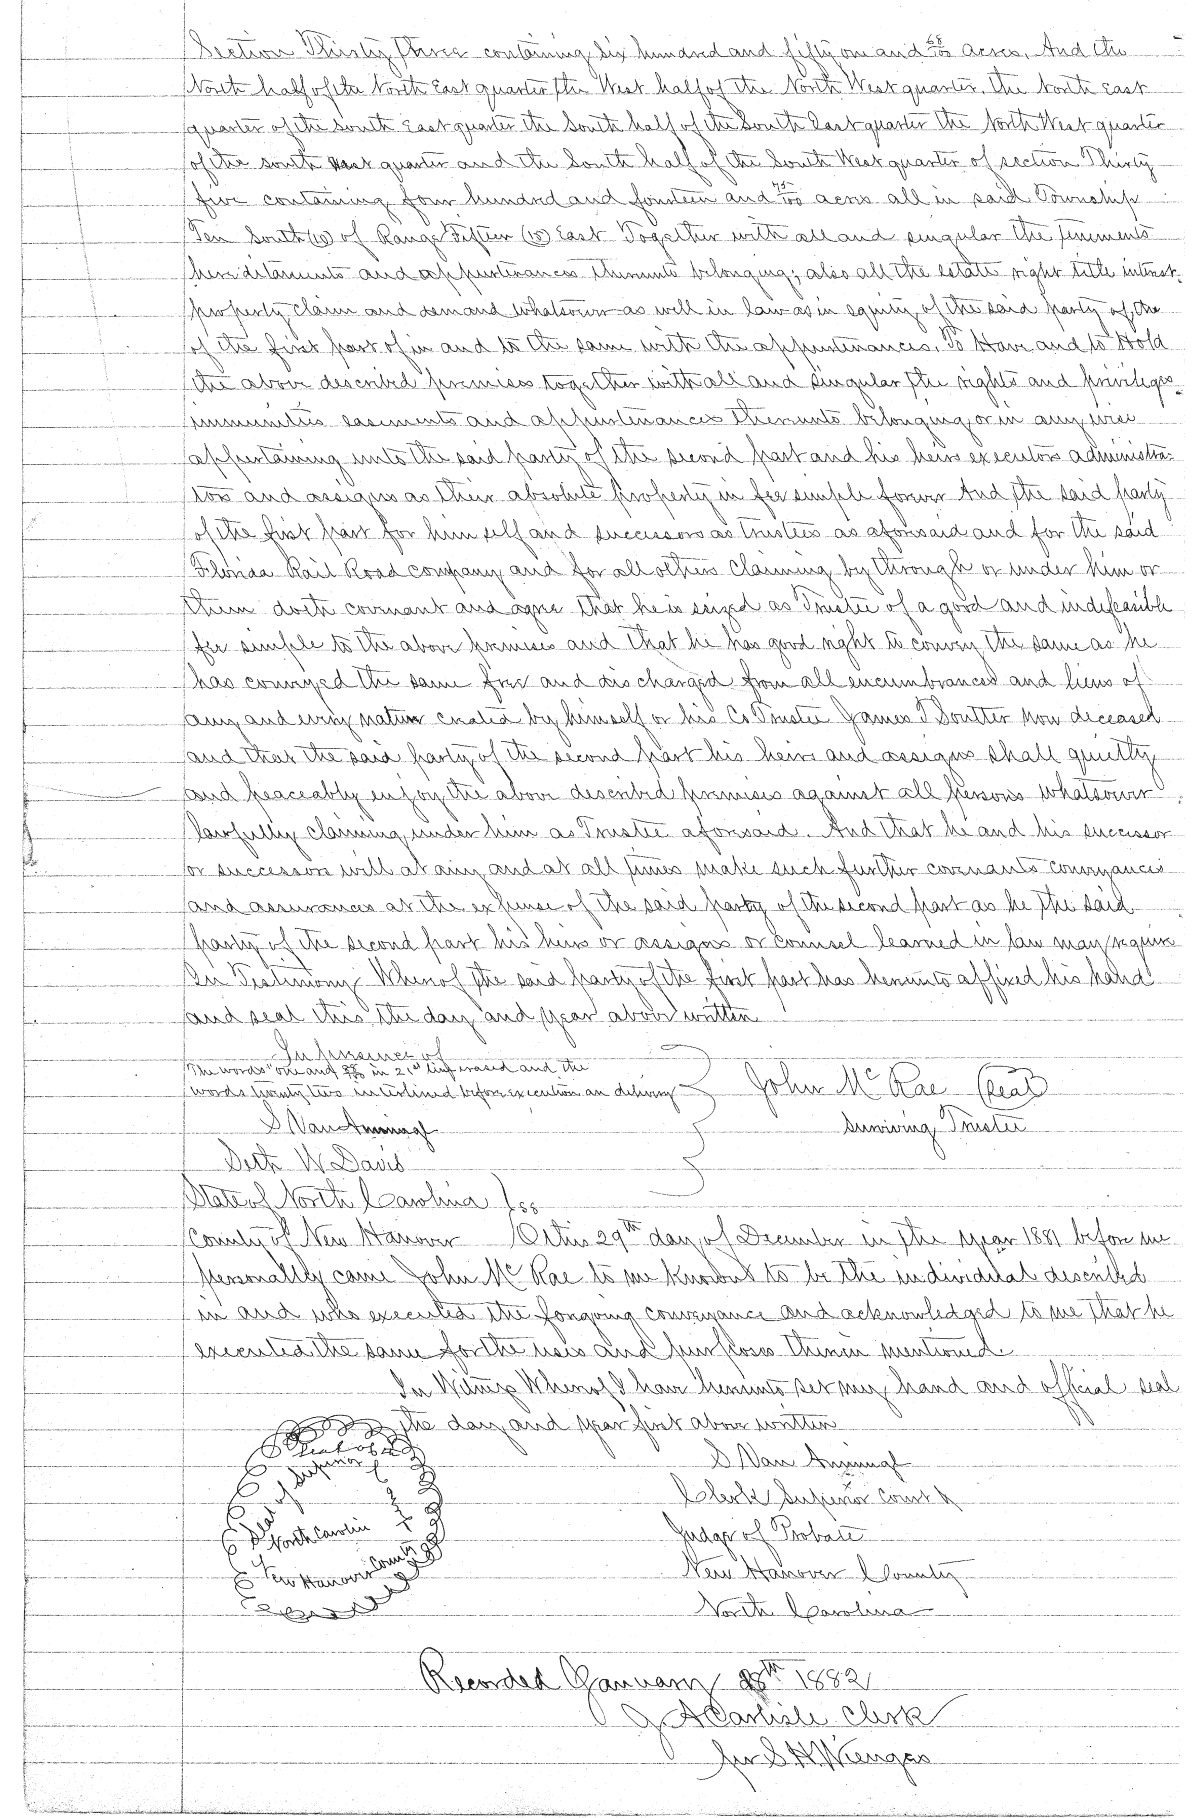 Section Thirty Three containing six hundred and fifty one and 68/100 acres, And the
North half of the North East quarter, the West half of the North West quarter, the North East
quarter of the South East quarter the South half of the South East quarter the North West quarter
of the South West quarter and the South half of the South West quarter of section Thirty
five containing four hundred and fourteen and 75/100 acres all in said Township
Ten South (10) of Range Fifteen (15) East Together with all and singular the tenements
hereditaments and appurtenances thereunto belonging; also all the estate right title interest
property claim and demand whatsover as well in law as in equity of the said party of the
of the first part of in and to the same with the appurtenances, To Have and to Hold
the above described premises together with all and singular the rights and privileges
immunities easements and appurtenances thereunto belonging or in any wise
appertaining unto the said party of the second part and his heirs executors administra-
tors and assigns as their absolute property in fee simple forever And the said party
of the first part for himself and successors as trustees as aforesaid and for the said
Florida Rail Road company and for all others claiming by through or under him or
them doth covenant and agree that he is seized as Trustee of a good and indefeasible
fee simple to the above premises and that he has good right to convey the same as he
has conveyed the same free and discharged from all encumbrances and liens of
any and every nature created by himself or his Co Trustee James T Soutter now deceased
and that the said party of the second part his heirs and assigns shall quietly
and peaceably enjoy the above described premises against all persons whatsoever
lawfully claiming under him as Trustee aforesaid. And that he and his successor
or successors will at any and at all times make such further covenants conveyances
and assurances at the expense of the said party of the second part as he the said
party of the second part his heirs or assigns or counsel learned in law may require
In Testimony Whereof the said party of the first part has hereunto affixed his hand
and seal this the day and year above written
In presence of
The words "one and 68/100 in 21st line erased and the
words twenty two interlined before execution an delivery
John Mc Rae (Seal)
S Van Amringe
Surviving Trustee
Seth W Davis
State of North Carolina } ss
County of New Hanover On this 29th day of December in the year 1881 before me
personally came John Mc Rae to me known to be the individual described
in and who executed the foregoing conveyance and acknowledged to me that he
executed the same for the uses and purposes therein mentioned.
In Witness Whereof I have hereunto set my hand and official seal
the day and year first above written
S Van Amringe
Clerk Superior Court &
Judge of Probate
New Hanover County
North Carolina
Seal of Superior
North Carolin
New Hanover County
Recorded January 28th 1882
J A Carlisle Clerk
per S H Wienges